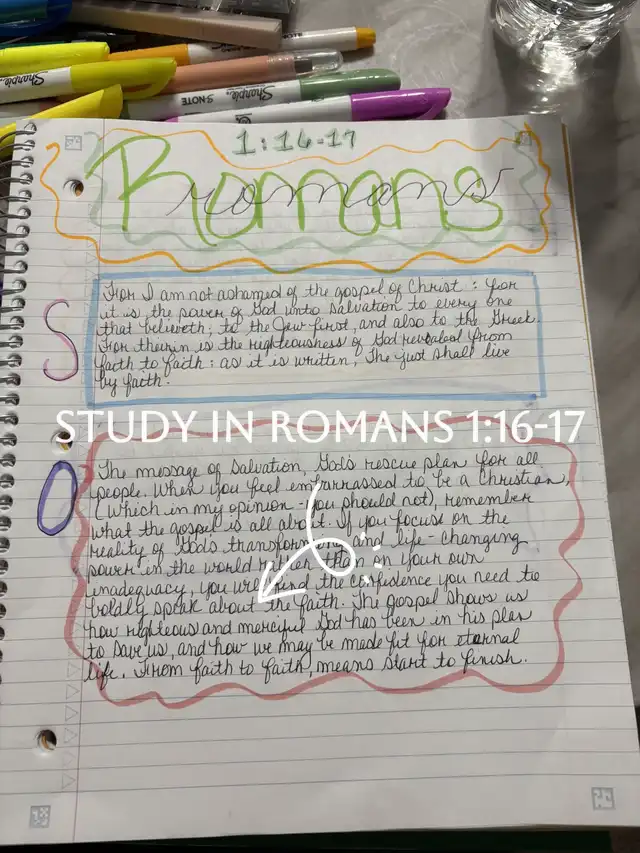 Sharpie
Sharpie
S·NOTE
Sharpie
1:16-17
Romans
romans
S
For I am not ashamed of the gospel of Christ: for
it is the power of God unto salvation to every one
that believeth, to the Jew first, and also to the Greek.
For therin is the righteousness of God revealed from
faith to faith: as it is written, The just shall live
by faith.
STUDY IN ROMANS 1:16-17
O
The message of salvation, God's rescue plan for all
people. When you feel embarrassed to be a Christian,
(which in my opinion - you should not), remember
what the gospel is all about. If you focus on the
reality of God's transforming and life-changing
power in the world rather than on your own
inadequacy, you will find the confidence you need to
boldly speak about the faith. The gospel shows us
how righteous and merciful God has been in his plan
to save us, and how we may be made fit for eternal
life. From faith to faith, means start to finish.